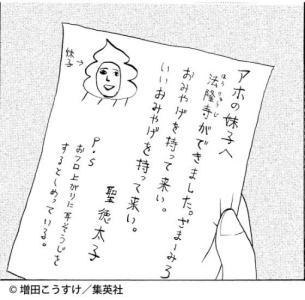 アホの妹子へ
法隆寺ができました。ざまーみろ
おみやげを持って来い。
いいおみやげを持って来い。
聖徳太子
P.S
おフロ上がりに耳そうじを
するとしめっている。
妹子→
ほうりゅうじ
© 増田こうすけ／集英社